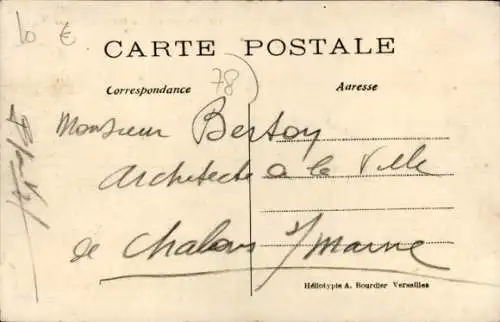 10 €
CARTE POSTALE
78
Correspondance
Adresse
Monsieur Bertoy
Architecte à la Ville
de Chalons s/ Marne
Héliotypie A. Bourdier Versailles